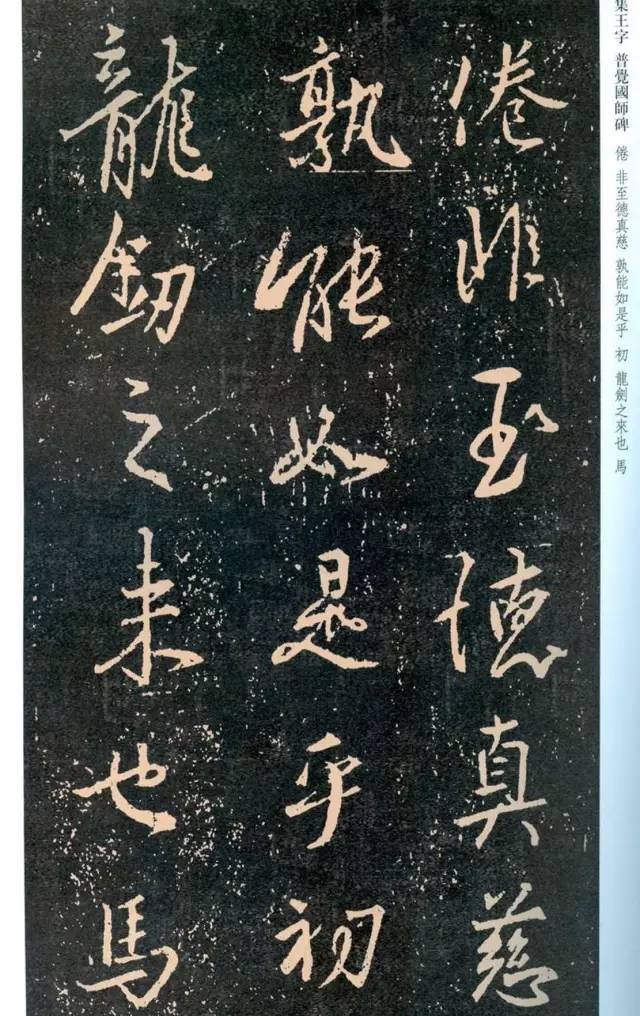 集王字 普覺國師碑 倦 非至德真慈 孰能如是乎 初 龍劍之來也 馬
倦非至德真慈
孰能如是乎初
龍劒之来也馬